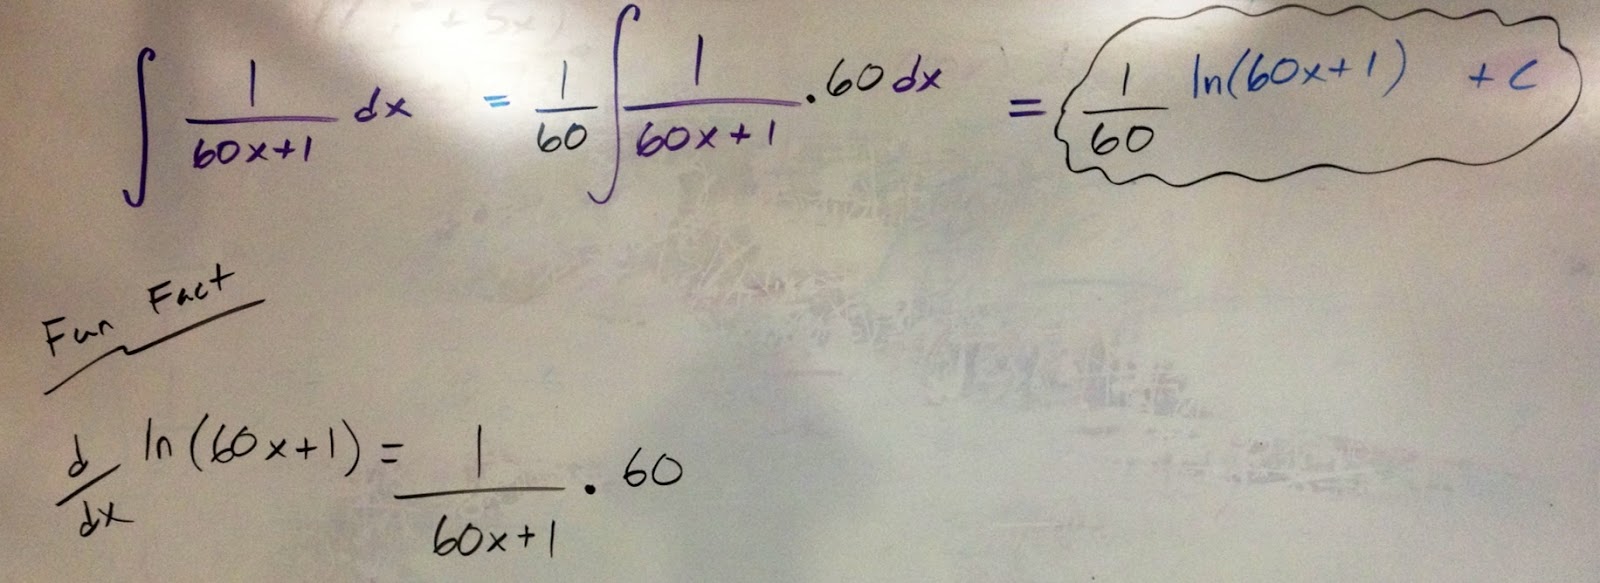 ∫ 1/(60x+1) dx = 1/60 ∫ 1/(60x+1) · 60 dx = 1/60 ln(60x+1) + C
Fun Fact
d/dx ln(60x+1) = 1/(60x+1) · 60